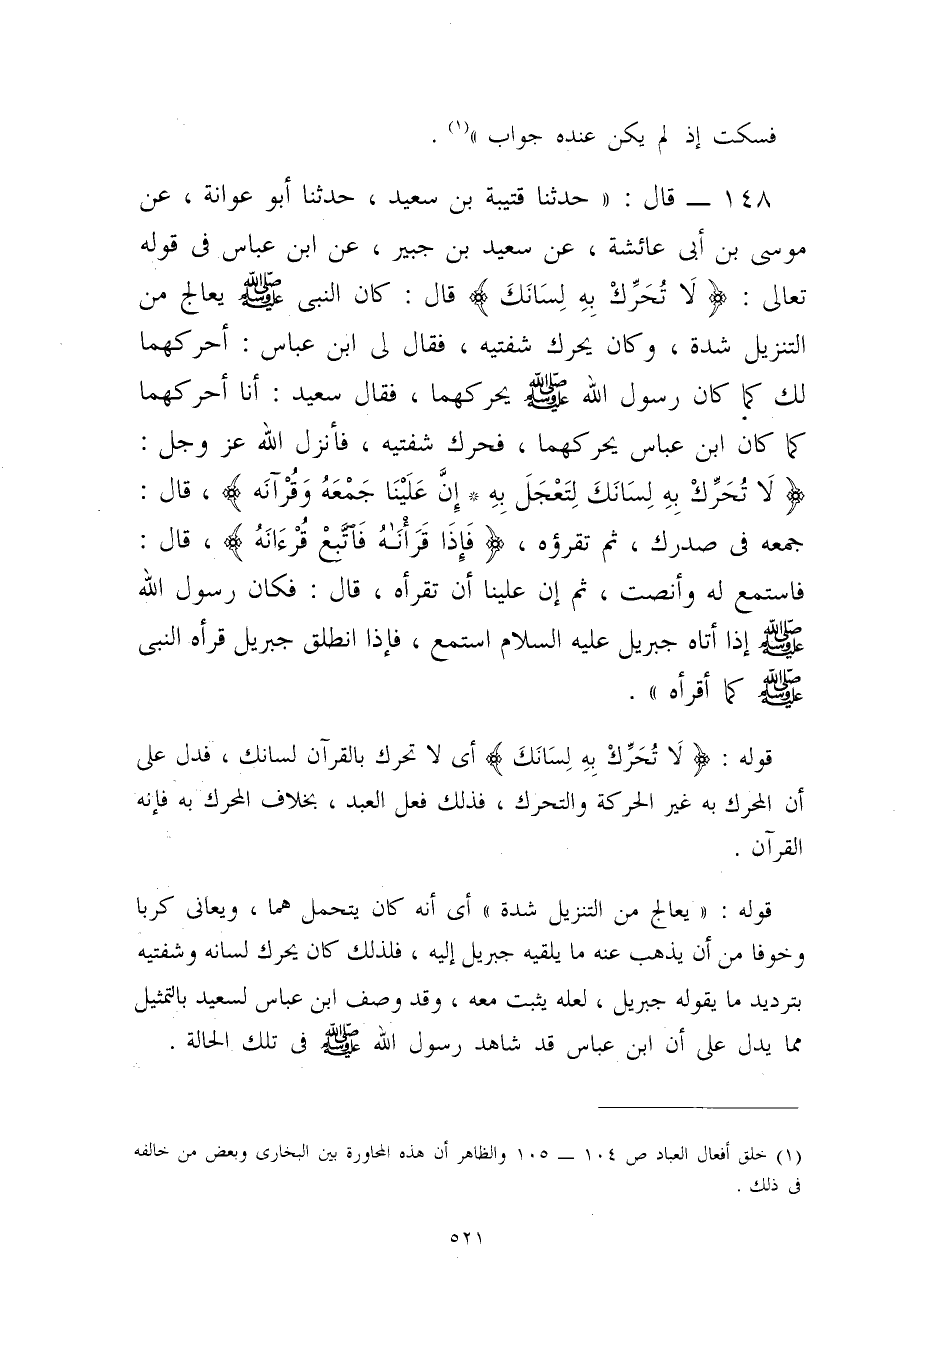 فسكت إذ لم يكن عنده جواب »(١) .
١٤٨ ــ قال : « حدثنا قتيبة بن سعيد ، حدثنا أبو عوانة ، عن
موسى بن أبى عائشة ، عن سعيد بن جبير ، عن ابن عباس فى قوله
تعالى : ﴿ لَا تُحَرِّكْ بِهِ لِسَانَكَ ﴾ قال : كان النبى ﷺ يعالج من
التنزيل شدة ، وكان يحرك شفتيه ، فقال لى ابن عباس : أحركهما
لك كما كان رسول الله ﷺ يحركهما ، فقال سعيد : أنا أحركهما
كما كان ابن عباس يحركهما ، فحرك شفتيه ، فأنزل الله عز وجل :
﴿ لَا تُحَرِّكْ بِهِ لِسَانَكَ لِتَعْجَلَ بِهِ * إِنَّ عَلَيْنَا جَمْعَهُ وَقُرْآنَه ﴾ ، قال :
جمعه فى صدرك ، ثم تقرؤه ، ﴿ فَإِذَا قَرَأْنَٰهُ فَٱتَّبِعْ قُرْءَانَهُ ﴾ ، قال :
فاستمع له وأنصت ، ثم إن علينا أن تقرأه ، قال : فكان رسول الله
ﷺ إذا أتاه جبريل عليه السلام استمع ، فإذا انطلق جبريل قرأه النبى
ﷺ كما أقرأه » .
قوله : ﴿ لَا تُحَرِّكْ بِهِ لِسَانَكَ ﴾ أى لا تحرك بالقرآن لسانك ، فدل على
أن المحرك به غير الحركة والتحرك ، فذلك فعل العبد ، بخلاف المحرك به فإنه
القرآن .
قوله : « يعالج من التنزيل شدة » أى أنه كان يتحمل هما ، ويعانى كربا
وخوفا من أن يذهب عنه ما يلقيه جبريل إليه ، فلذلك كان يحرك لسانه وشفتيه
بترديد ما يقوله جبريل ، لعله يثبت معه ، وقد وصف ابن عباس لسعيد بالتمثيل
مما يدل على أن ابن عباس قد شاهد رسول الله ﷺ فى تلك الحالة .
(١) خلق أفعال العباد ص ١٠٤ ــ ١٠٥ والظاهر أن هذه المحاورة بين البخارى وبعض من خالفه
فى ذلك .
٥٢١